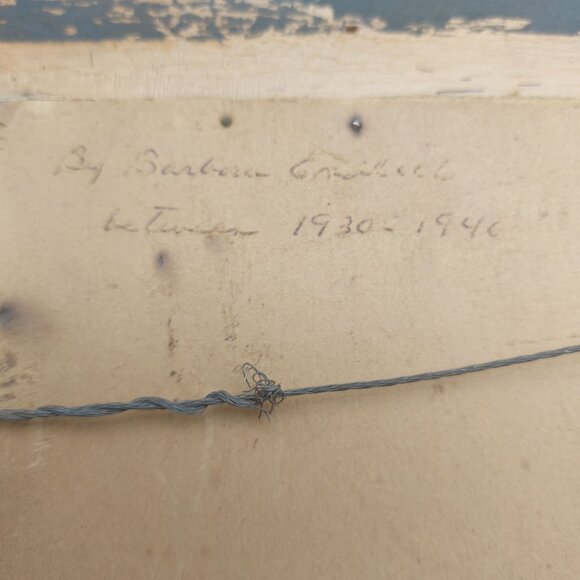 By Barbara
between 1930-1940